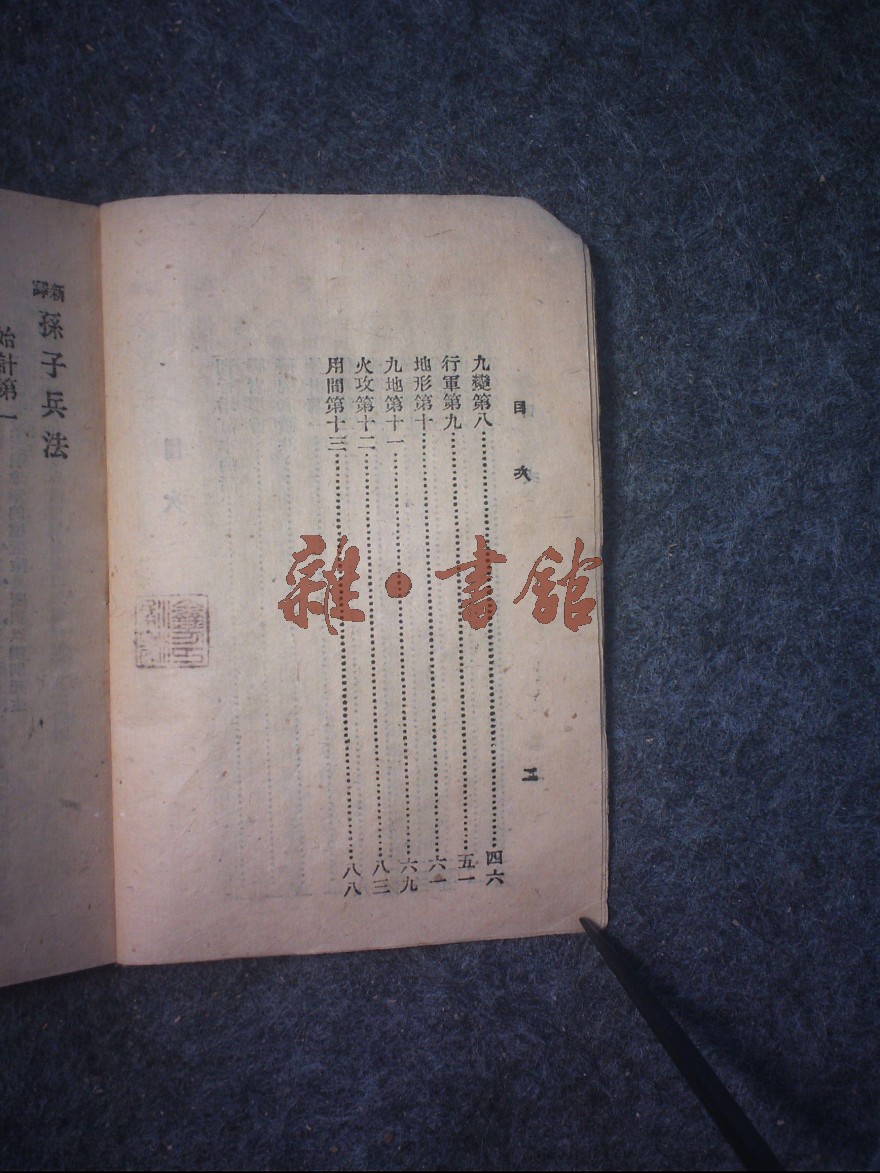 目次
二
九變第八……四六
行軍第九……五一
地形第十……六一
九地第十一……六九
火攻第十二……八三
用間第十三……八八
新譯
孫子兵法
始計第一
雜·書館